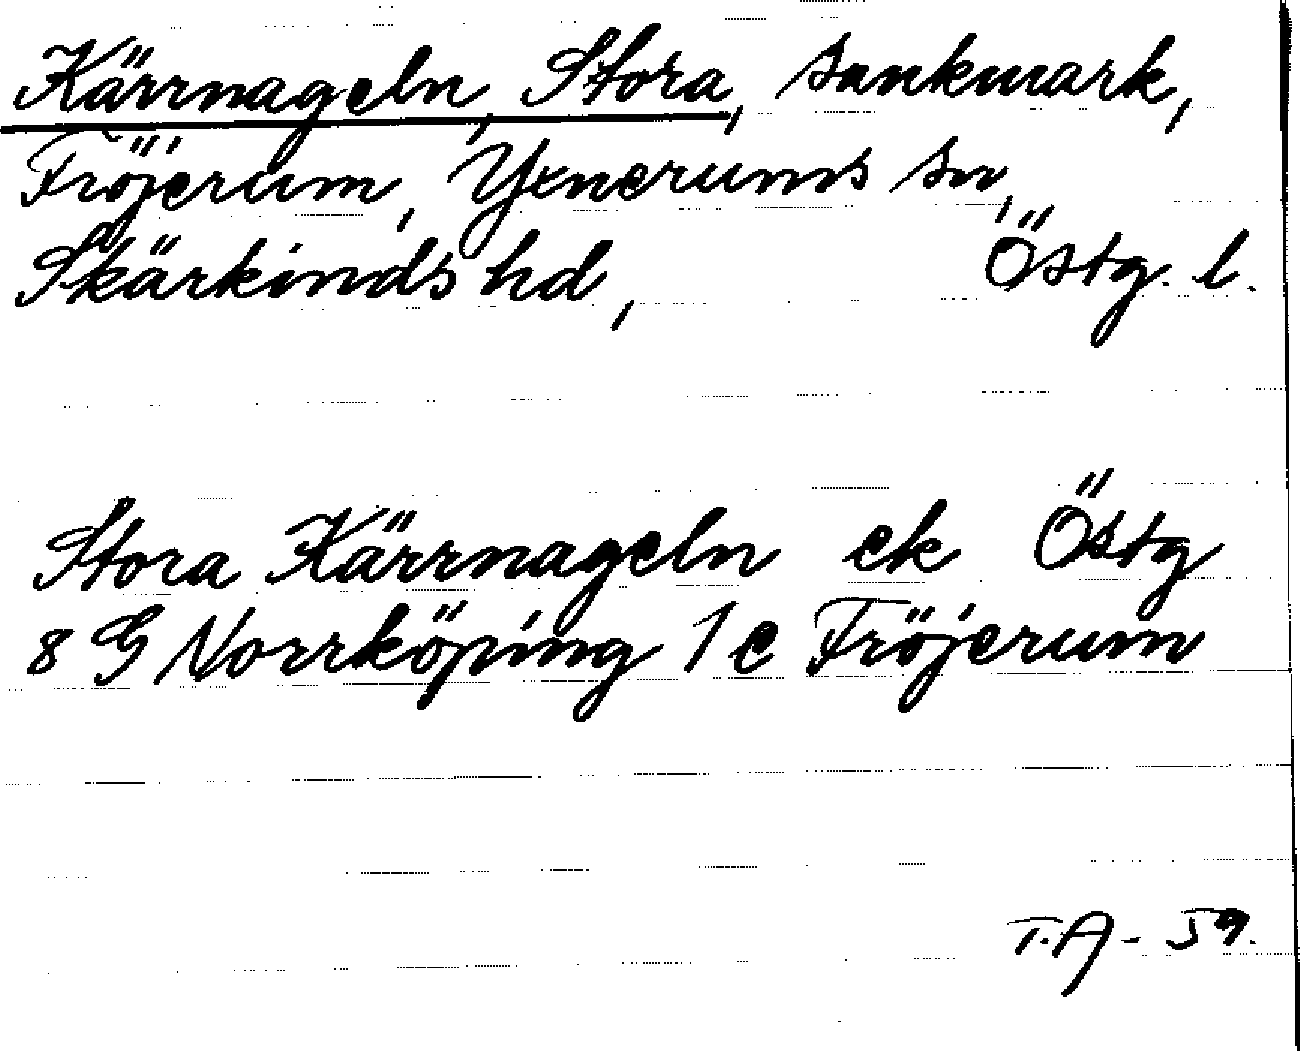 Kärrnageln, Stora, sankmark,
Fröjerum, Yxnerums sn,
Skärkinds hd, Östg. l.
Stora Kärrnageln ek Östg
8 G Norrköping 1 e Fröjerum
T.A - 59.